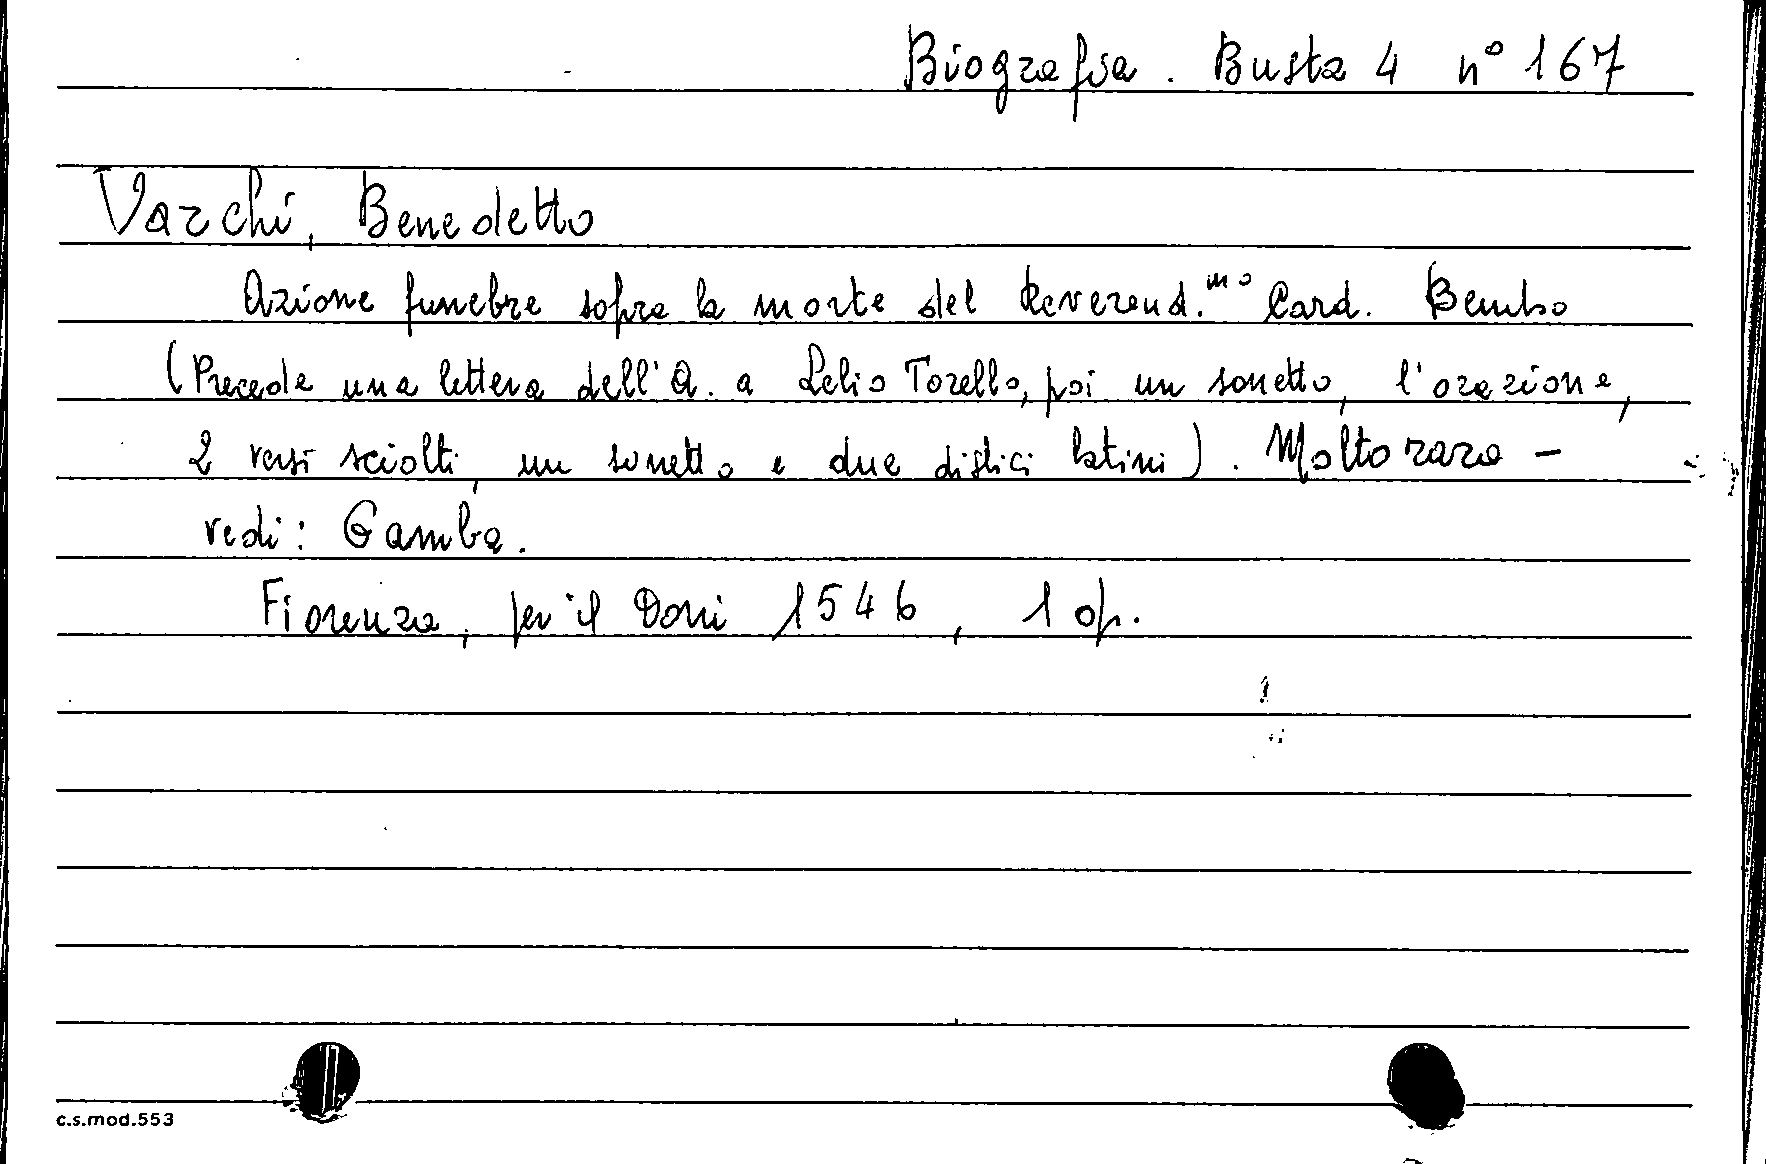 Biografia. Busta 4 n° 167
Varchi, Benedetto
Orazione funebre sopra la morte del Reverend.mo Card. Bembo
(Precede una lettera dell'A. a Lelio Torello, poi un sonetto, l'orazione,
2 versi sciolti, un sonetto e due distici latini). Molto raro –
vedi: Gamba.
Fiorenza, per il Doni 1546, 1 op.
c.s.mod.553